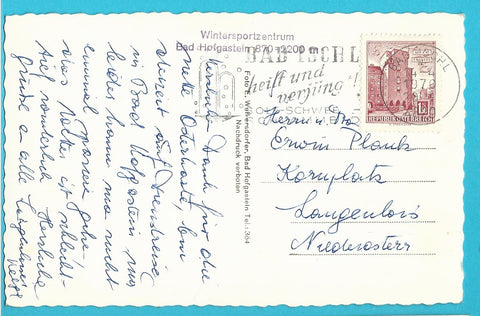 Wintersportzentrum
Bad Hofgastein, 870-2200 m
BAD ISCHL
heilt und
verjüngt!
1.50
REPUBLIK ÖSTERREICH
Foto E. Wolkersdorfer, Bad Hofgastein Tel.: 364
Nachdruck verboten
Herrn u. Fra
Erwin Plank
Kornplatz
Langenlois
Niederösterr
Dank für die
nette Osterkarte, bin
derzeit auf Dienstreise
in Bad Hofgastein nur
leider kann man nicht
einmal spazieren gehen
das Wetter ist schlecht
Grüße an alle Langenloiser